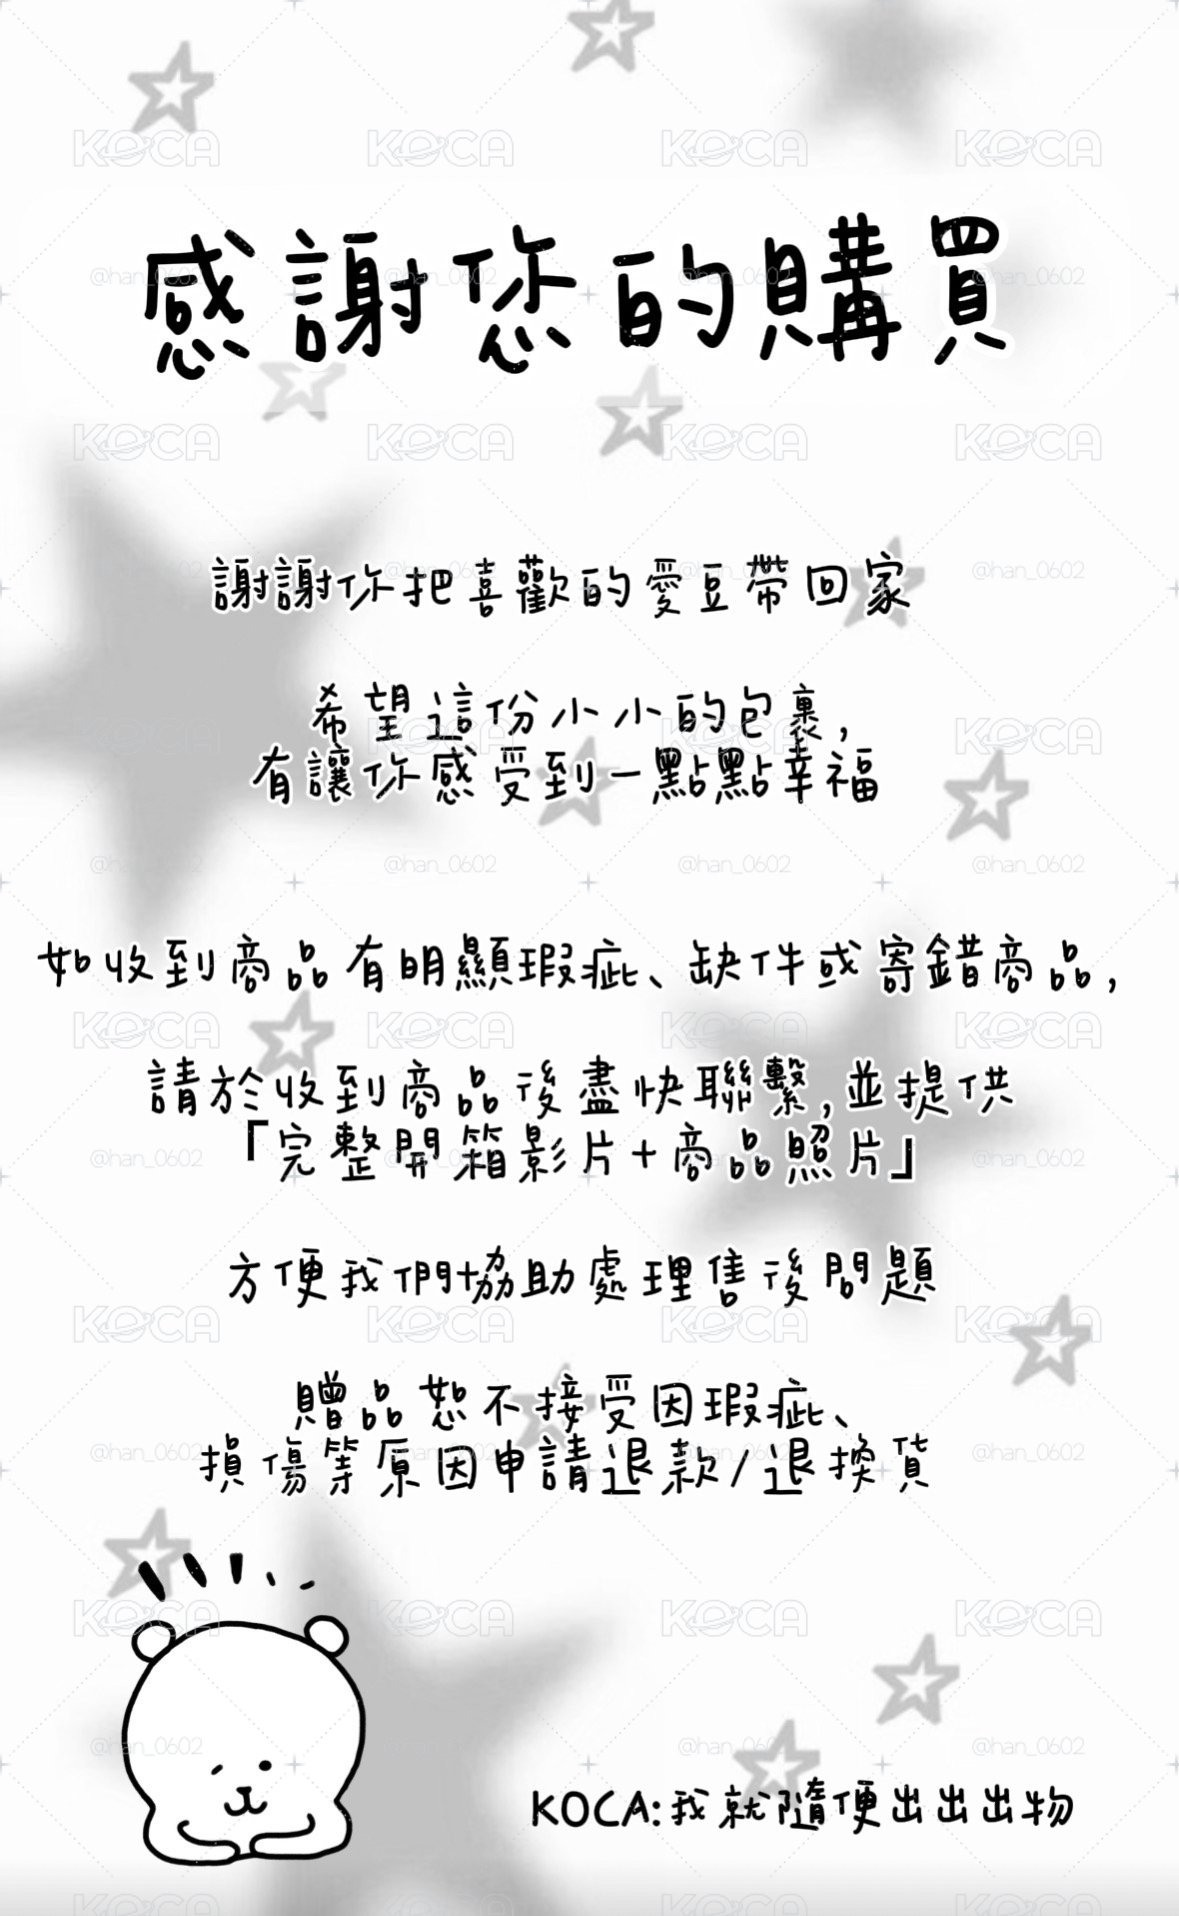 感謝您的購買
謝謝你把喜歡的愛豆帶回家
希望這份小小的包裹,
有讓你感受到一點點幸福
如收到商品有明顯瑕疵、缺件或寄錯商品,
請於收到商品後盡快聯繫,並提供
「完整開箱影片+商品照片」
方便我們協助處理售後問題
贈品恕不接受因瑕疵、
損傷等原因申請退款/退換貨
KOCA:我就隨便出出出物
KOCA
@han_0602